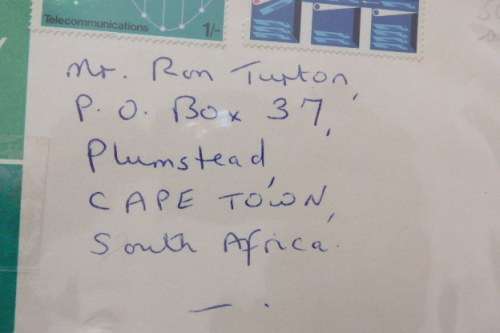 Telecommunications 1/-
Mr. Ron Turton,
P. O. Box 37,
Plumstead,
CAPE TOWN,
South Africa.